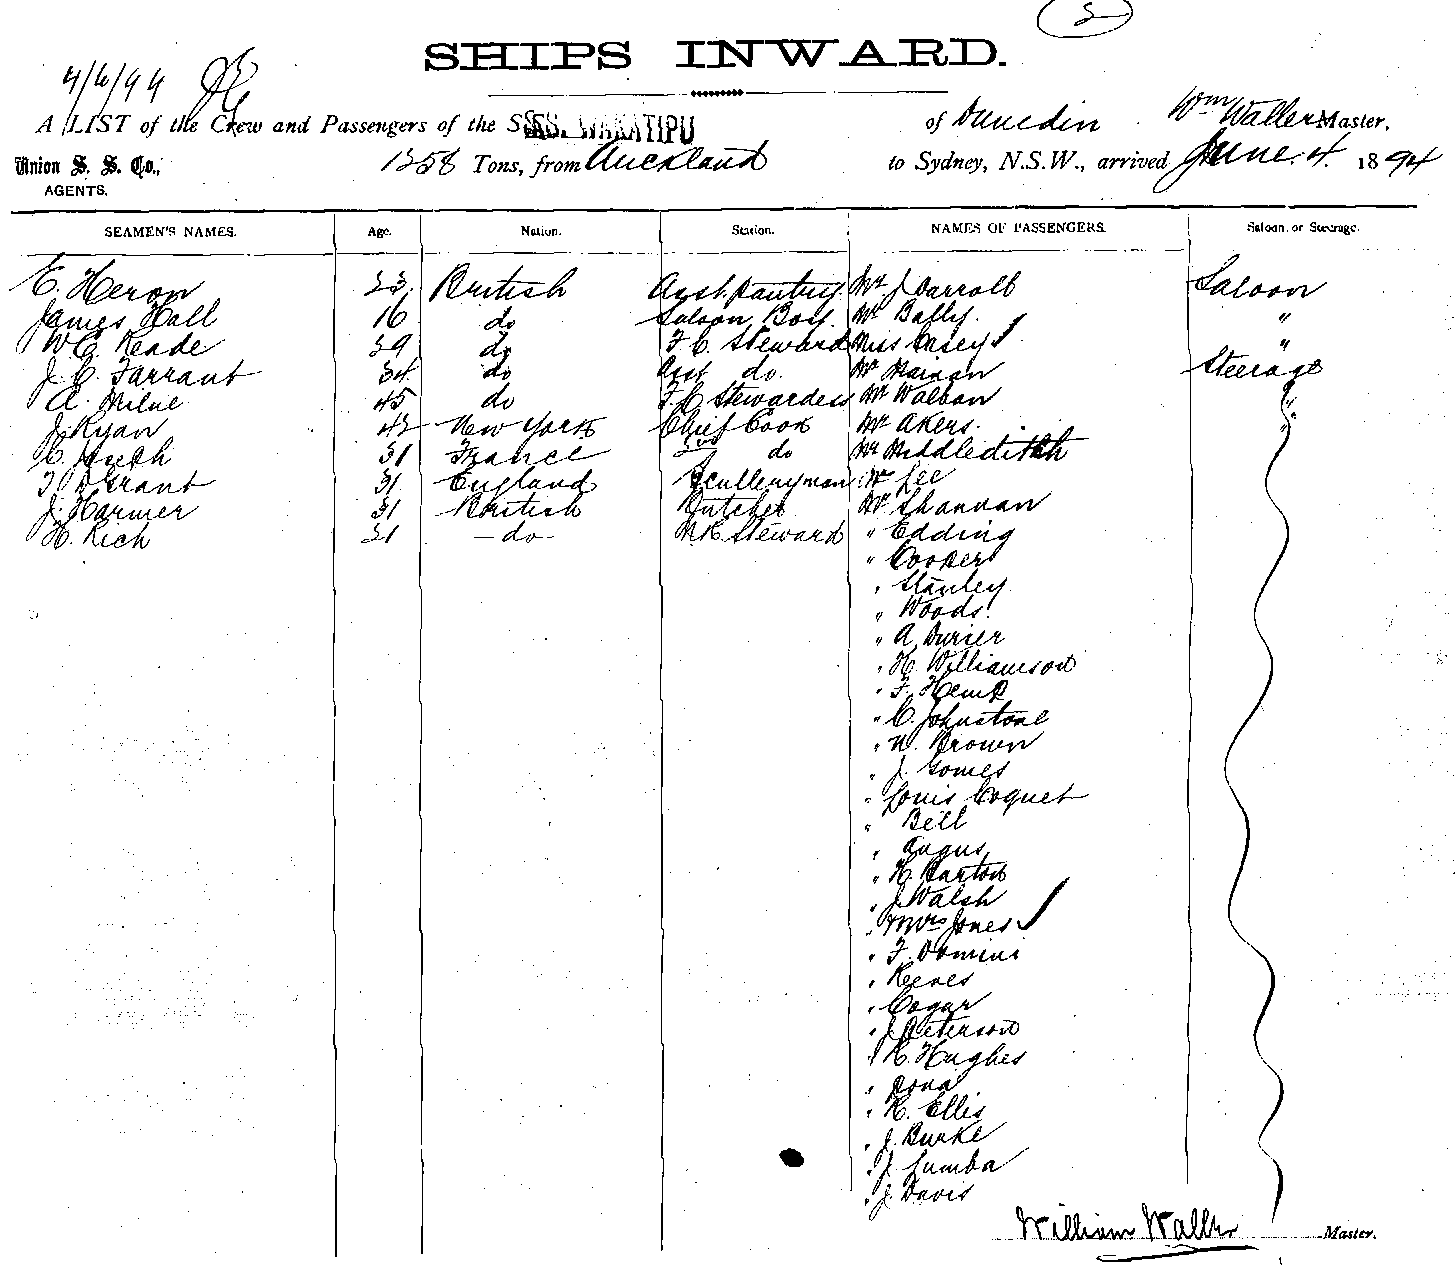 SHIPS INWARD.
4/6/94
A LIST of the Crew and Passengers of the S.S. WAKATIPU of Dunedin Wm Waller Master,
Union S. S. Co., 1258 Tons, from Auckland to Sydney, N.S.W., arrived June 4. 1894
AGENTS.
SEAMEN'S NAMES. Age. Nation. Station. NAMES OF PASSENGERS. Saloon, or Steerage.
E. Heron 23 British Asst. Pantry. Mr J Darroll Saloon
James Hall 16 do Saloon Boy. Mr Bally. "
W. C. Reade 39 do F. C. Steward Miss Casey "
J. C. Farrant 34 do Asst do. Mr Steerage
A. Milne 45 do F. C. Stewardess Mr Walton "
J. Ryan 42 New York Chief Cook Mr Akers. "
C. 31 France 2nd do Mr Middledith
31 England Sculleryman Mr Lee
J. Harmer 31 British Butcher Mr Shannan
H. Rich 21 - do - Steward " Edding
" Cooper
" Stanley
" Woods.
" A Durier
" H. Williamson
" F. Hemp
" C. Johnstone
" W. Brown
" J. Gomes
" Louis Coquet
" Bell
" Angus
" H. Barton
" J. Walsh
" Mrs Jones
" F. Domini
" Reeves
" Cogar
" J Peterson
" H. Hughes
" Rona
" R. Ellis
" J. Burke
" J. Lumba
" J. Davis
William Waller Master.